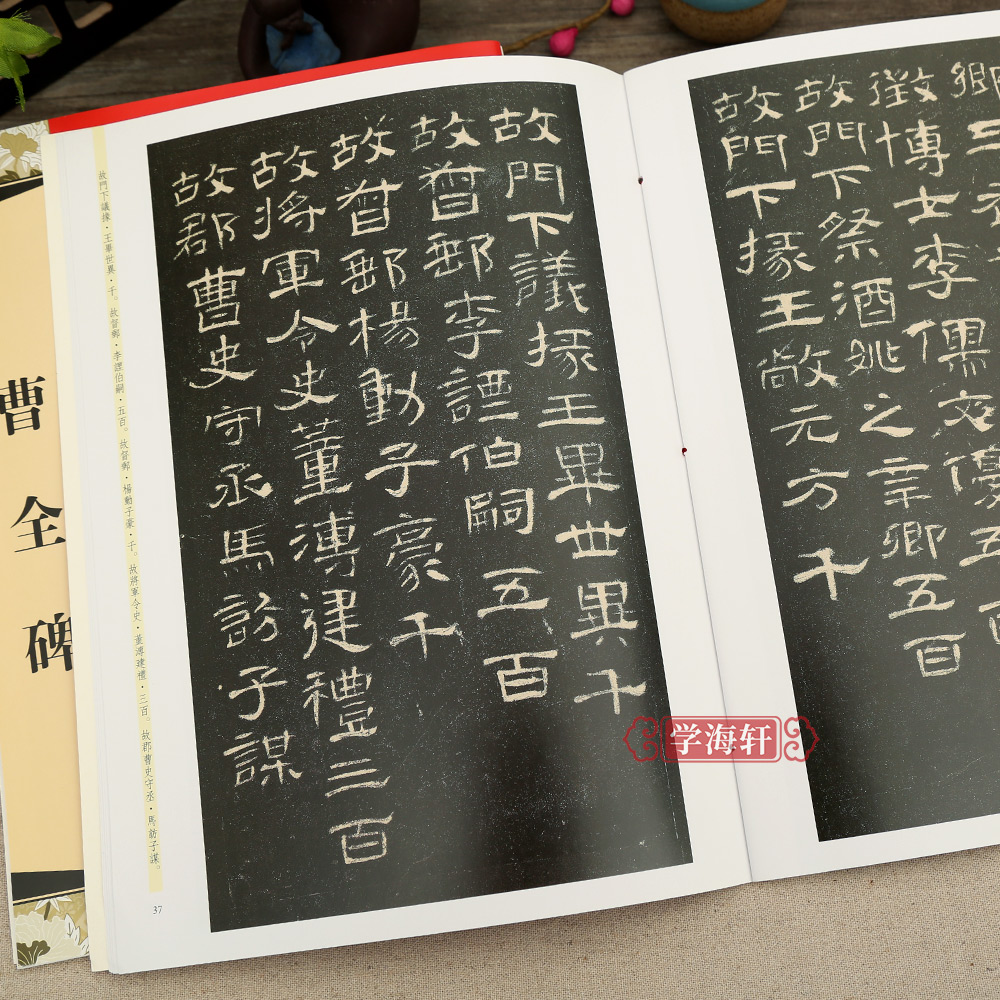 曹全碑
故門下議掾·王畢世異·千。故督郵·李諲伯嗣·五百。故督郵·楊動子豪·千。故將軍令史·董溥建禮·三百。故郡曹史守丞·馬訪子謀。
37
故門下議掾王畢世異千
故督郵李諲伯嗣五百
故督郵楊動子豪千
故將軍令史董溥建禮三百
故郡曹史守丞馬訪子謀
徵博士李儒文優五百
故門下祭酒姚之辛卿五百
故門下掾王敞元方千
学海轩